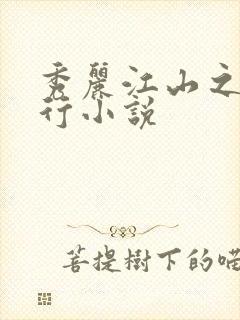 秀麗江山之
行小說
菩提樹下的喵